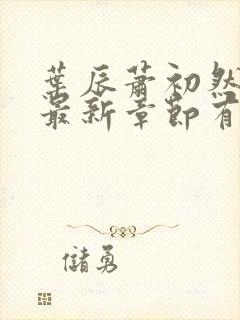 葉辰蕭初然
最新章節有
儲勇